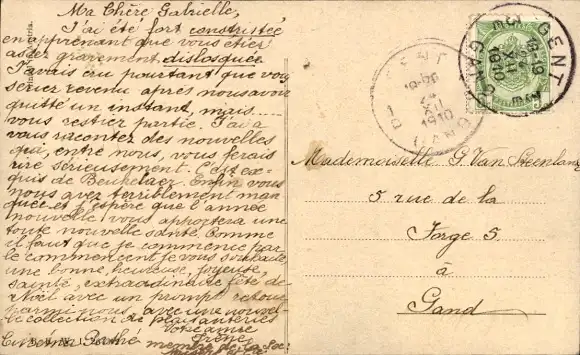 Ma Chère Gabrielle,
J'ai été fort constristée
en apprenant que vous étiez
assez gravement disloquée
J'avais cru pourtant que vous
seriez revenu après nous avoir
quitté un instant, mais
vous restiez partie. J'ai à
vous racontez des nouvelles
qui, entre nous, vous ferais
rire sérieusement. C'est ex-
quis de Enfin vous
nous avez terriblement man
quée et j'espère que l'année
nouvelle vous apportera une
toute nouvelle santé. Comme
il faut que je commence par
le commencent je vous souhaite
une bonne, heureuse, joyeuse,
sainte, extraordinaire fête de
Noël avec un prompt retour
parmi nous, avec une nouvel-
le collection de plaisanteries
Votre amie
Irène
membre de la Soc
GENT
18-19
XII
1910
GAND
GENT
XII
1910
GAND
Mademoiselle G. Van Steenlan
5 rue de la
Forge 5
à
Gand